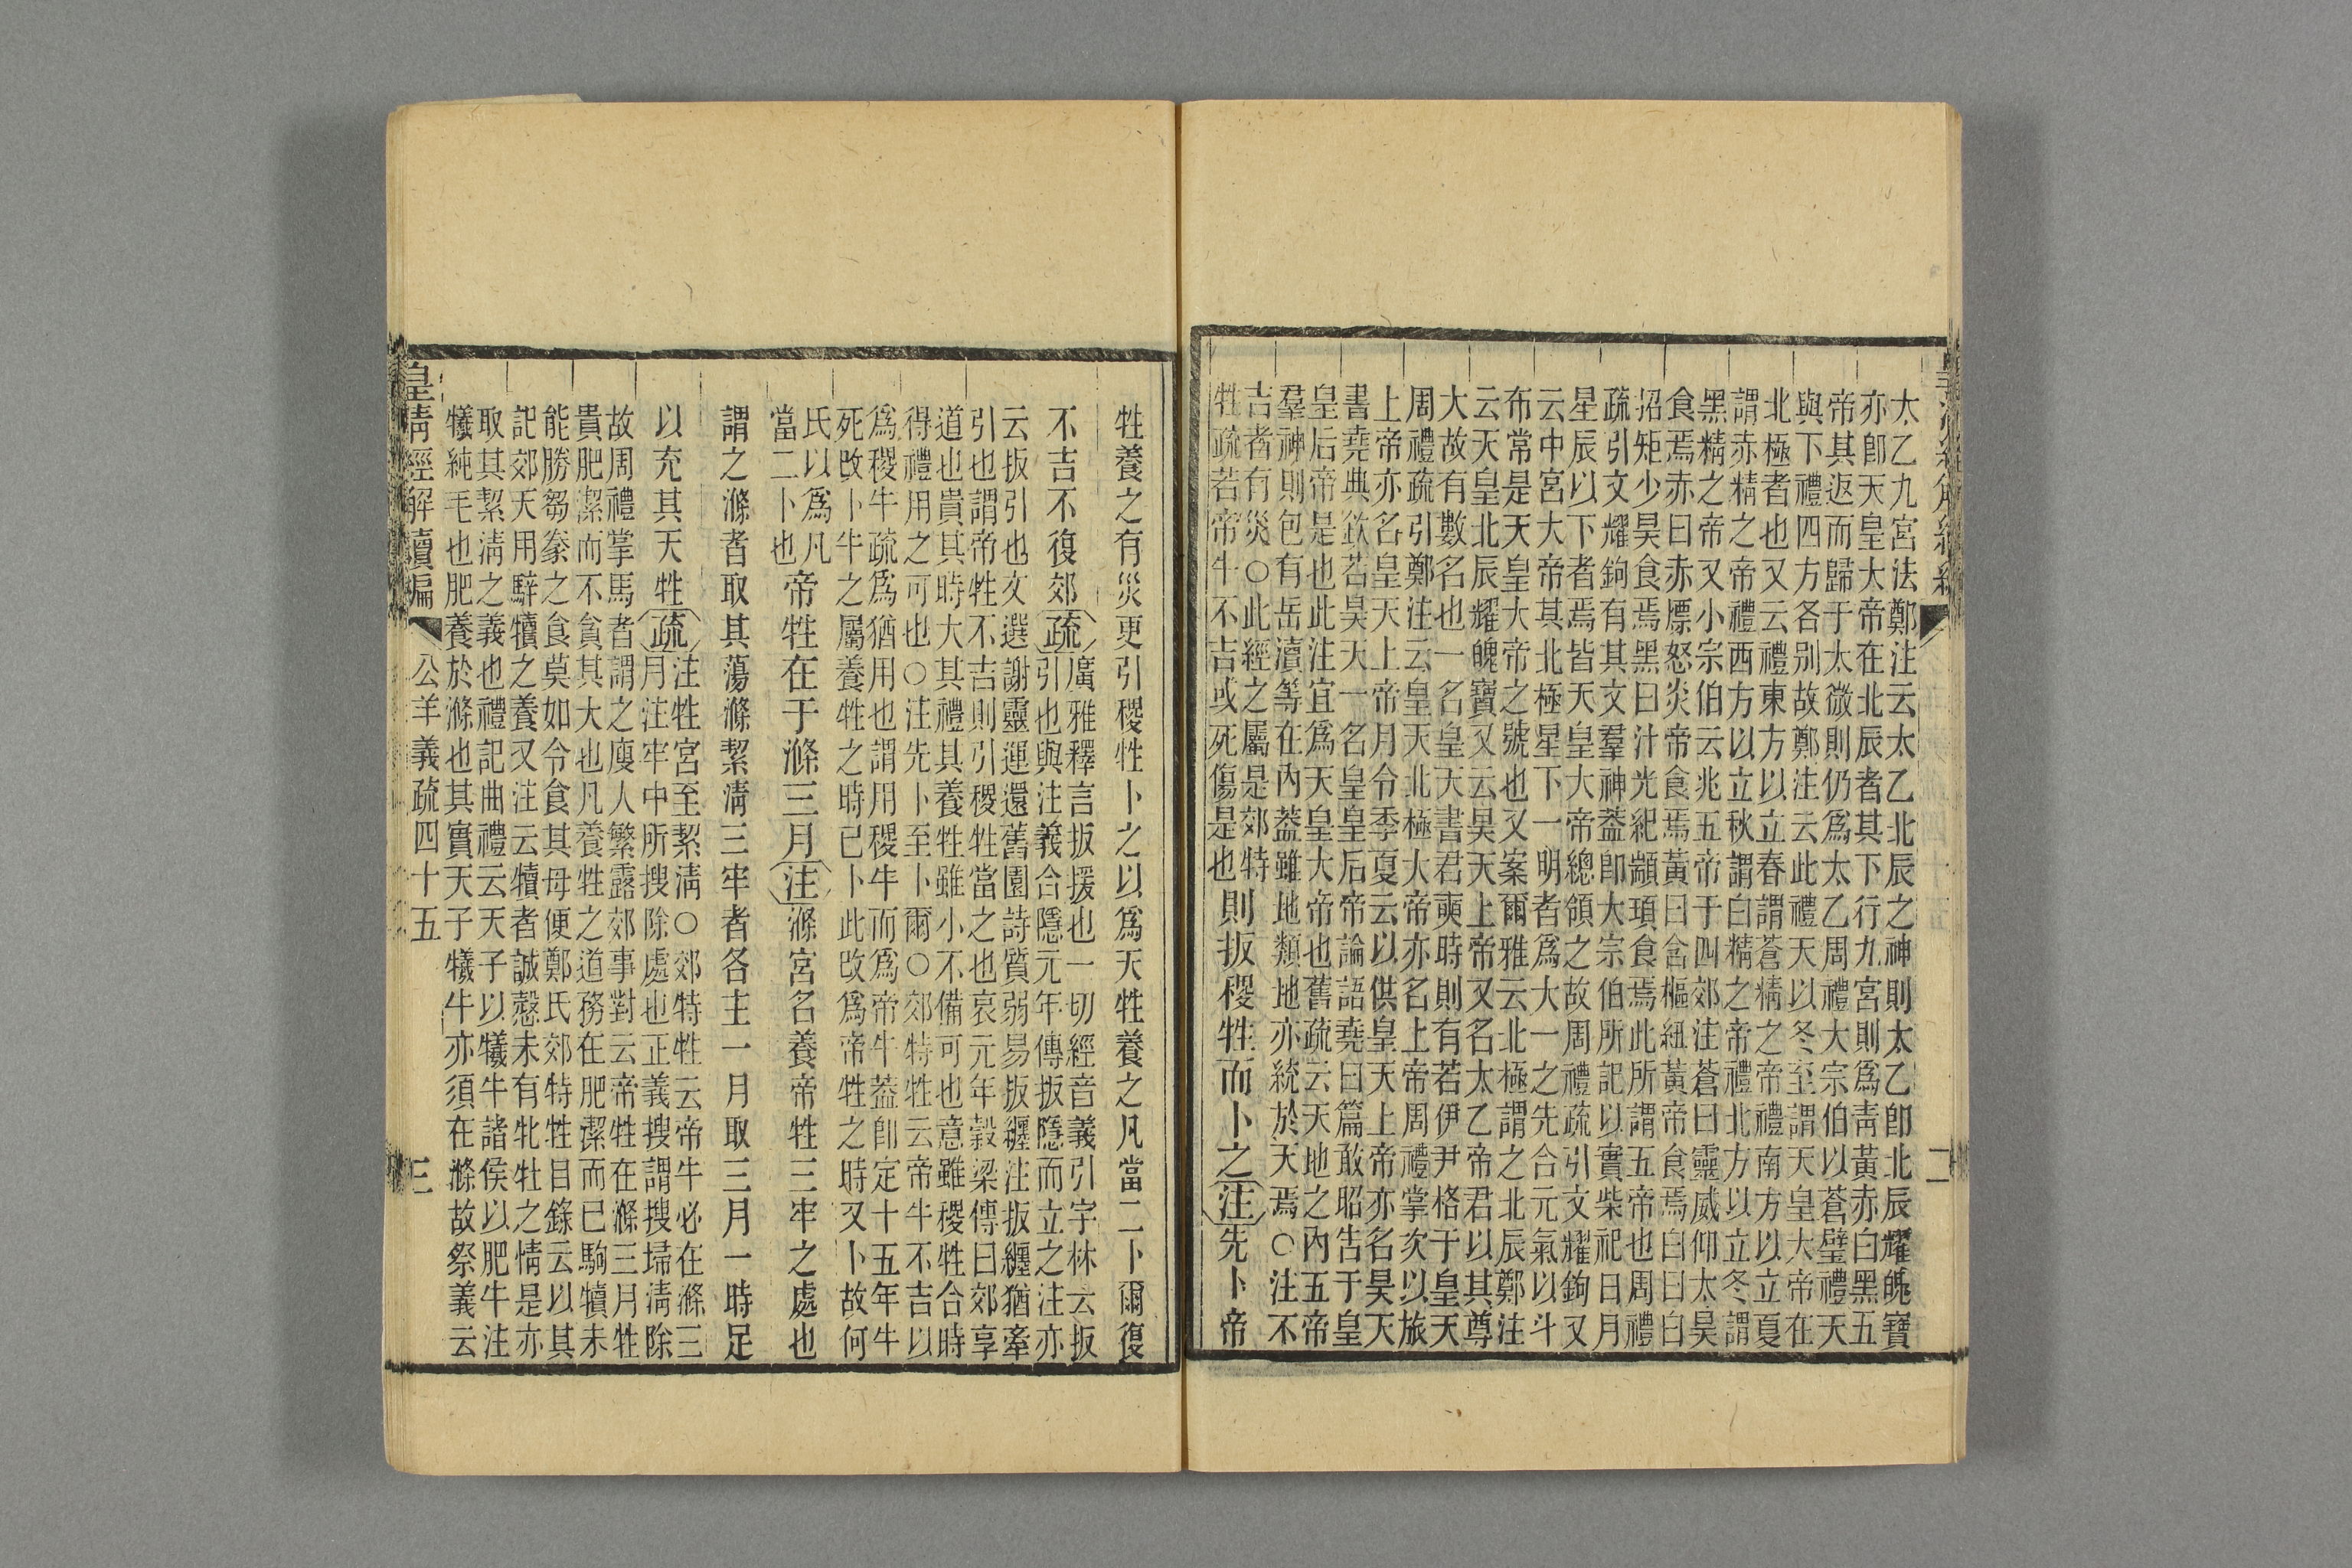 皇淸經解續編
二
太乙九宮法鄭注云太乙北辰之神則太乙卽北辰耀魄寶
亦卽天皇大帝在北辰者其下行九宮則爲靑黃赤白黑五
帝其返而歸于太微則仍爲太乙周禮大宗伯以蒼璧禮天
與下禮四方各別故鄭注云此禮天以冬至謂天皇大帝在
北極者也又云禮東方以立春謂蒼精之帝禮南方以立夏
謂赤精之帝禮西方以立秋謂白精之帝禮北方以立冬謂
黑精之帝又小宗伯云兆五帝于四郊注蒼曰靈威仰太昊
食焉赤曰赤熛怒炎帝食焉黃曰含樞紐黃帝食焉白曰白
招矩少昊食焉黑曰汁光紀顓頊食焉此所謂五帝也周禮
疏引文耀鉤有其文羣神蓋卽大宗伯所記以實柴祀日月
星辰以下者焉皆天皇大帝總領之故周禮疏引文耀鉤又
云中宮大帝其北極星下一明者爲大一之先合元氣以斗
布常是天皇大帝之號也又案爾雅云北極謂之北辰鄭注
云天皇北辰耀魄寶又云昊天上帝又名太乙帝君以其尊
大故有數名也一名皇天書君奭時則有若伊尹格于皇天
周禮疏引鄭注云皇天北極大帝亦名上帝周禮掌次以旅
上帝亦名皇天上帝月令季夏云以供皇天上帝亦名昊天
書堯典欽若昊天一名皇皇后帝論語堯曰篇敢昭告于皇
皇后帝是也此注宜爲天皇大帝也舊疏云天地之內五帝
羣神則包有岳瀆等在內蓋雖地類地亦統於天焉○注不
吉者有災○此經之屬是郊特
牲疏若帝牛不吉或死傷是也
則扳稷牲而卜之注先卜帝
牲養之有災更引稷牲卜之以爲天牲養之凡當二卜爾復
不吉不復郊疏
廣雅釋言扳援也一切經音義引字林云扳
引也與注義合隱元年傳扳隱而立之注亦
云扳引也文選謝靈運還舊園詩質弱易扳纏注扳纏猶牽
引也謂帝牲不吉則引稷牲當之也哀元年穀梁傳曰郊享
道也貴其時大其禮其養牲雖小不備可也意雖稷牲合時
得禮用之可也○注先卜至卜爾○郊特牲云帝牛不吉以
爲稷牛疏爲猶用也謂用稷牛而爲帝牛蓋卽定十五年牛
死改卜牛之屬養牲之時已卜此改爲帝牲之時又卜故何
氏以爲凡
當二卜也
帝牲在于滌三月注滌宮名養帝牲三牢之處也
謂之滌者取其蕩滌絜淸三牢者各主一月取三月一時足
以充其天牲疏
注牲宮至絜淸○郊特牲云帝牛必在滌三
月注牢中所搜除處也正義搜謂搜埽淸除
故周禮掌馬者謂之廋人繁露郊事對云帝牲在滌三月牲
貴肥潔而不貪其大也凡養牲之道務在肥潔而已駒犢未
能勝芻豢之食莫如令食其母便鄭氏郊特牲目錄云以其
記郊天用騂犢之養又注云犢者誠慤未有牝牡之情是亦
取其絜淸之義也禮記曲禮云天子以犧牛諸侯以肥牛注
犧純毛也肥養於滌也其實天子犧牛亦須在滌故祭義云
皇淸經解續編
公羊義疏四十五
三